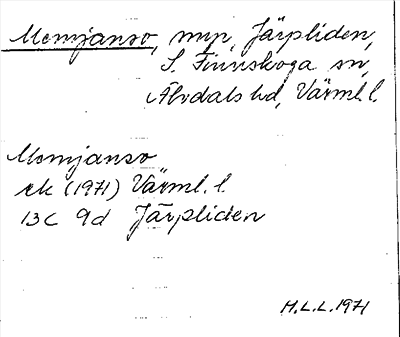 Momjanso, myr, Järpliden,
S. Finnskoga sn,
Älvdals hd, Värml. l.
Momjanso
ek (1971) Värml. l.
13C 9d Järpliden
H.L.L. 1971